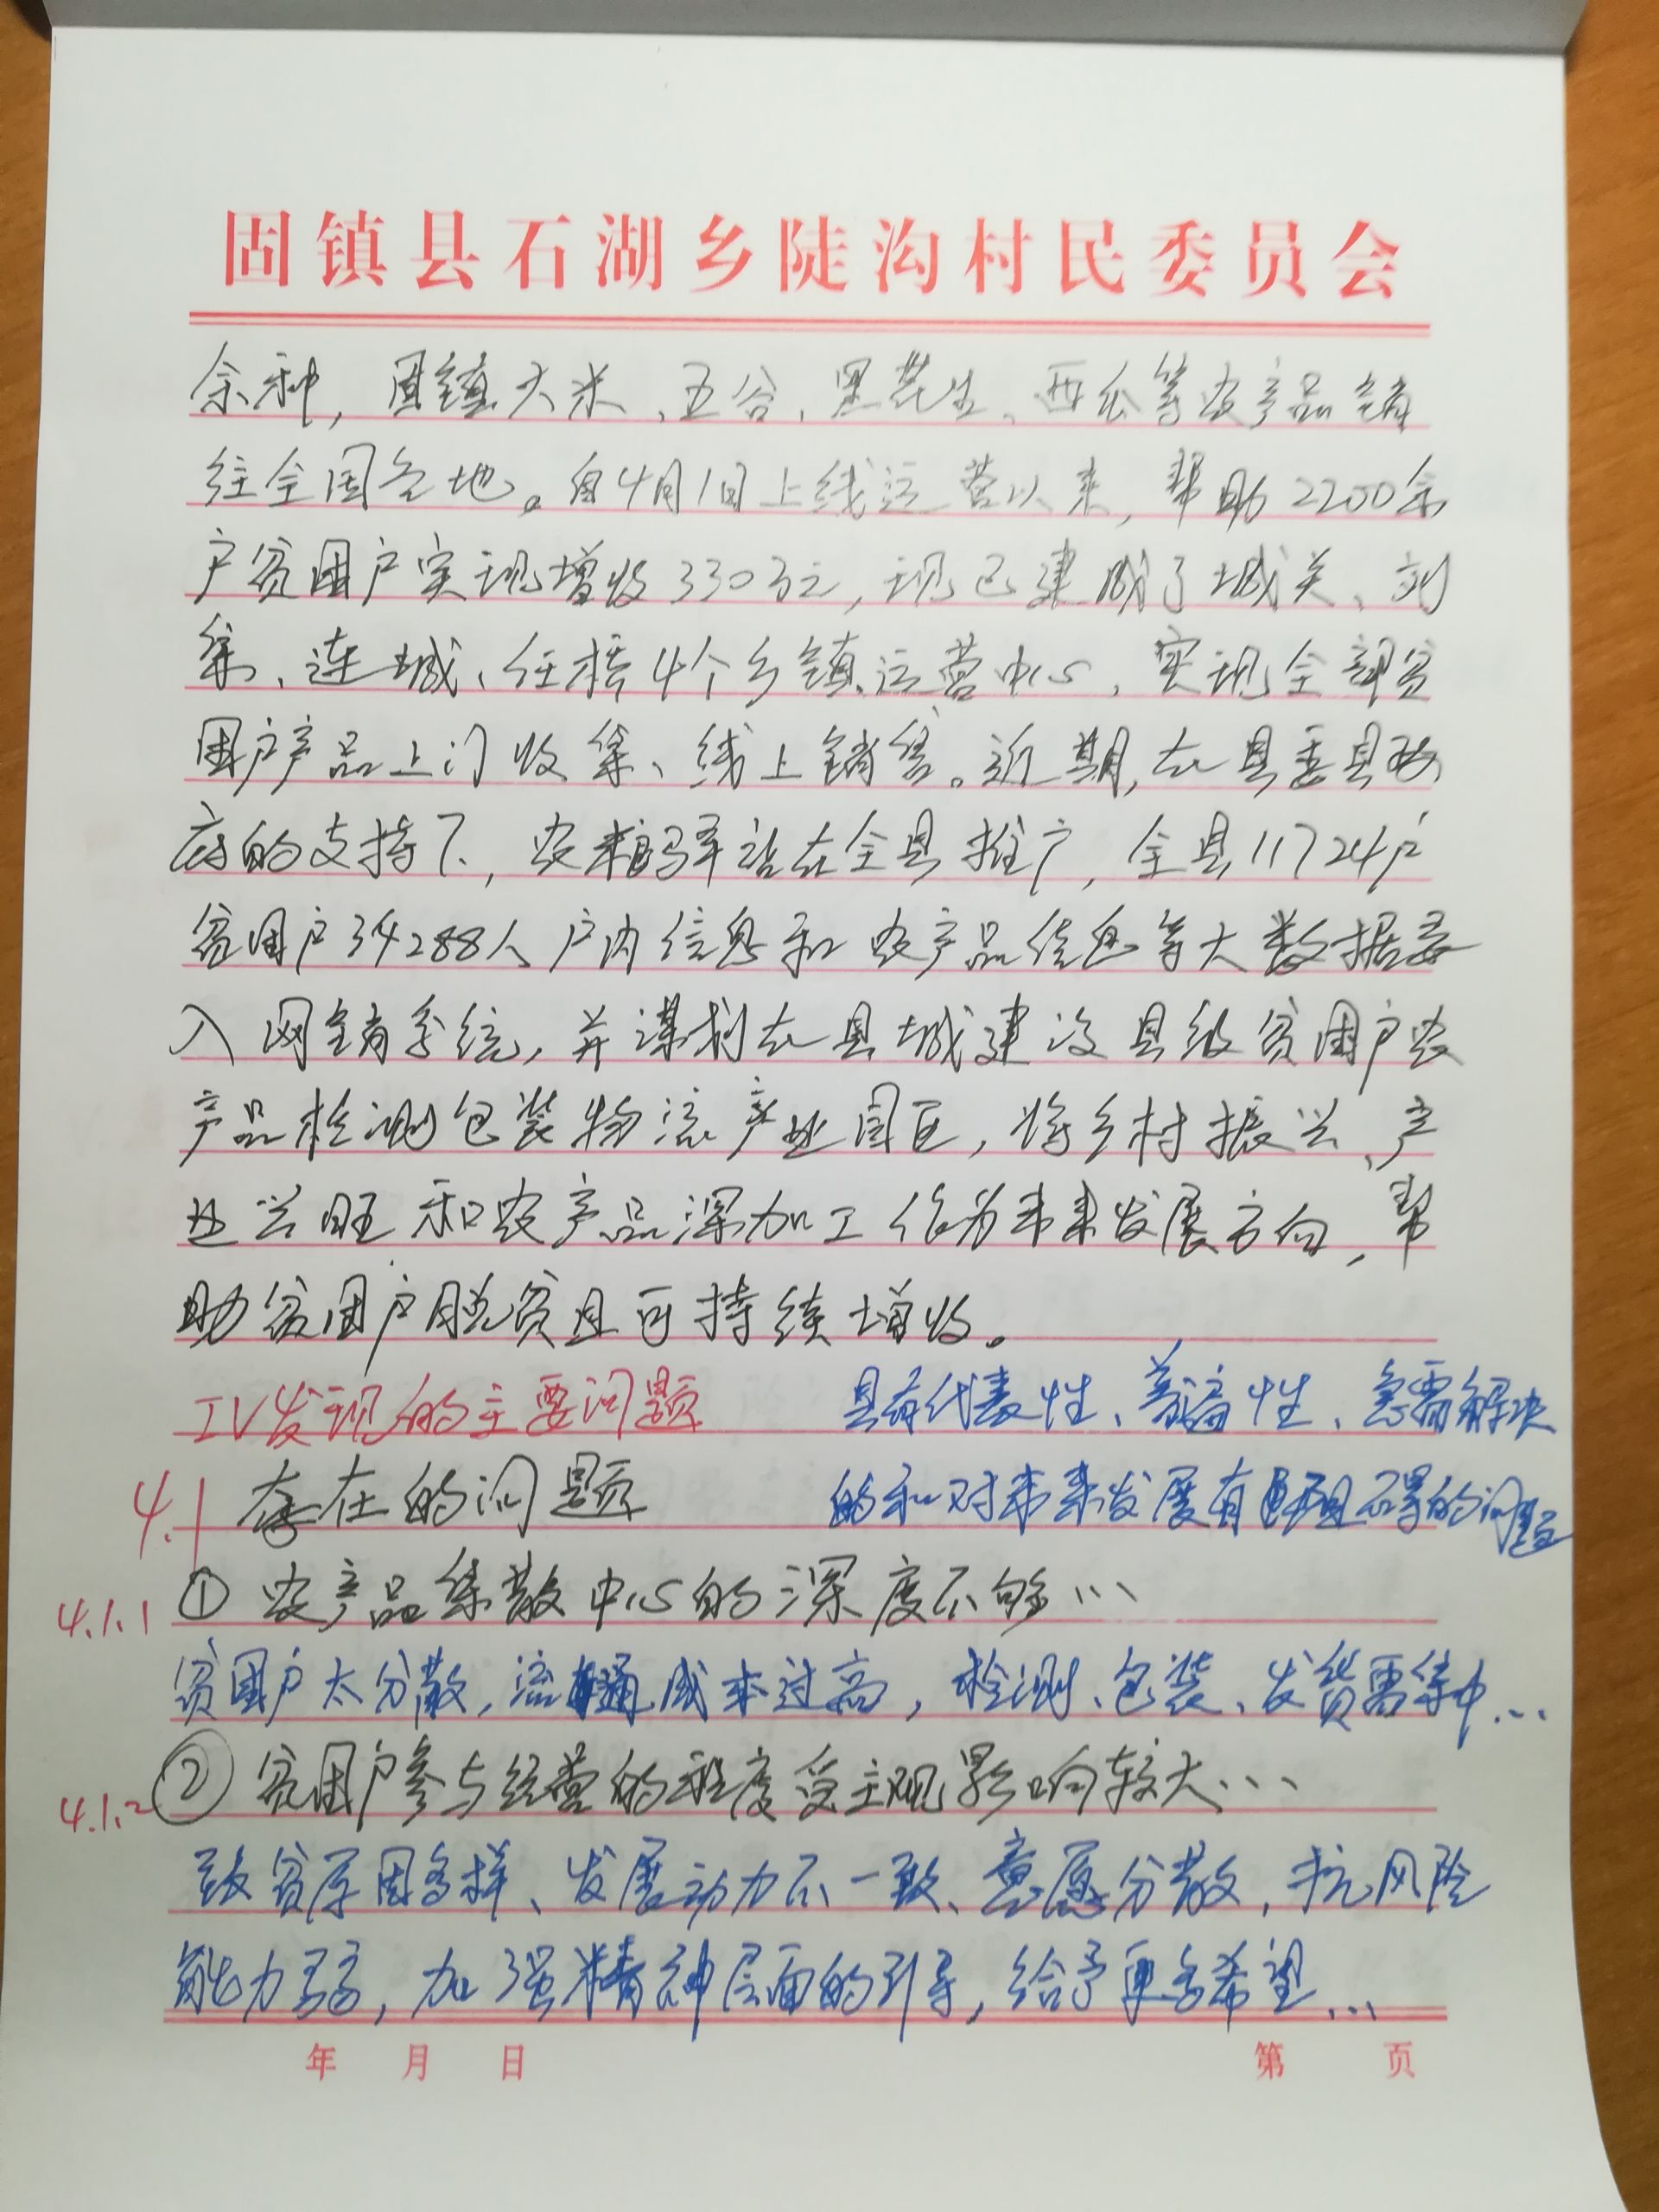 固镇县石湖乡陡沟村民委员会
余种，固镇大米、五谷、黑花生、西瓜等农产品销
往全国各地。自4月1日上线运营以来，帮助2200余
户贫困户实现增收330万元，现已建成了城关、刘
集、连城、任桥4个乡镇运营中心，实现全部贫
困户产品上门收集、线上销售。近期，在县委县政
府的支持下，农来码驿站在全县推广，全县11724户
贫困户34288人户内信息和农产品信息等大数据录
入网销系统，并谋划在县城建设县级贫困户农
产品检测包装物流产业园区，将乡村振兴、产
业兴旺和农产品深加工作为未来发展方向，帮
助贫困户脱贫且可持续增收。
IV发现的主要问题 具有代表性、普遍性、急需解决
4.1 存在的问题 的和对未来发展有不得的问题
4.1.1 ① 农产品集散中心的深度不够…
贫困户太分散，流通成本过高，检测、包装、发货需集中…
4.1.2 ② 贫困户参与经营的程度受主观影响较大…
致贫原因多样、发展动力不一致、意愿分散，抗风险
能力弱，加强精神层面的引导，给予更多希望…
年 月 日 第 页